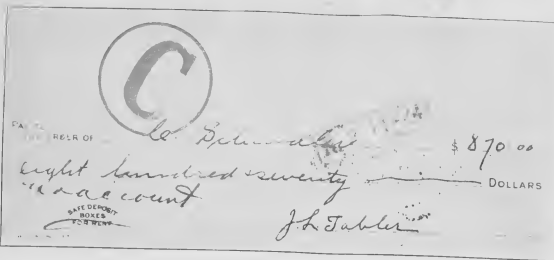 C
ORDER OF C. Edwards $ 870 00
eight hundred seventy DOLLARS
account
SAFE DEPOSIT
BOXES
FOR RENT
J. L. Tabler